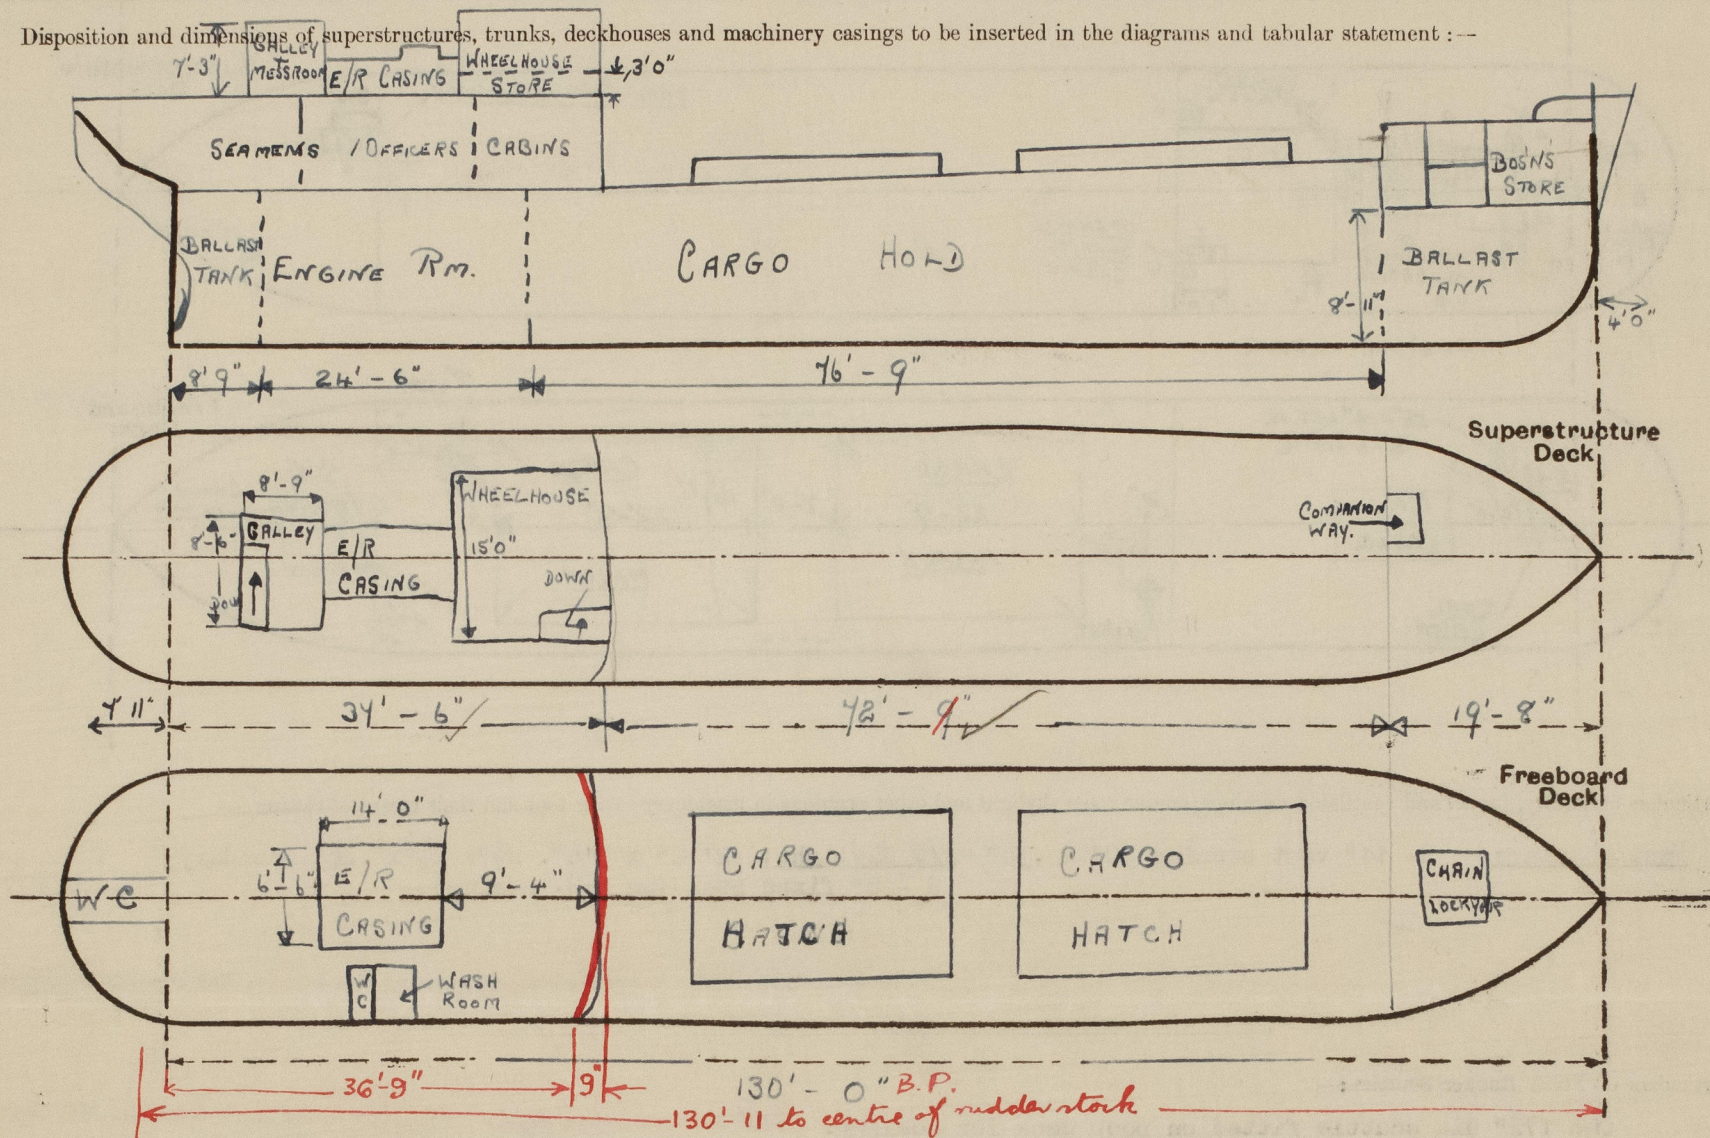 Disposition and dimensions of superstructures, trunks, deckhouses and machinery casings to be inserted in the diagrams and tabular statement :—
7'-3"
GALLEY
MESSROOM
E/R CASING
WHEELHOUSE
STORE
3'0"
SEAMENS / OFFICERS CABINS
BOS'NS
STORE
BALLAST
TANK
ENGINE RM.
CARGO HOLD
BALLAST
TANK
8'-11"
4'0"
8'9"
24'-6"
76'-9"
Superstructure
Deck
8'-9"
WHEELHOUSE
GALLEY
8'-6"
E/R
CASING
15'0"
DOWN
COMPANION
WAY.
19'-8"
Freeboard
Deck
14'-0"
6'-6"
E/R
CASING
9'-4"
WC
WC
WASH
ROOM
CARGO
HATCH
CARGO
HATCH
CHAIN
36'-9"
9"
130'-0" B.P.
130'-11 to centre of rudder stock